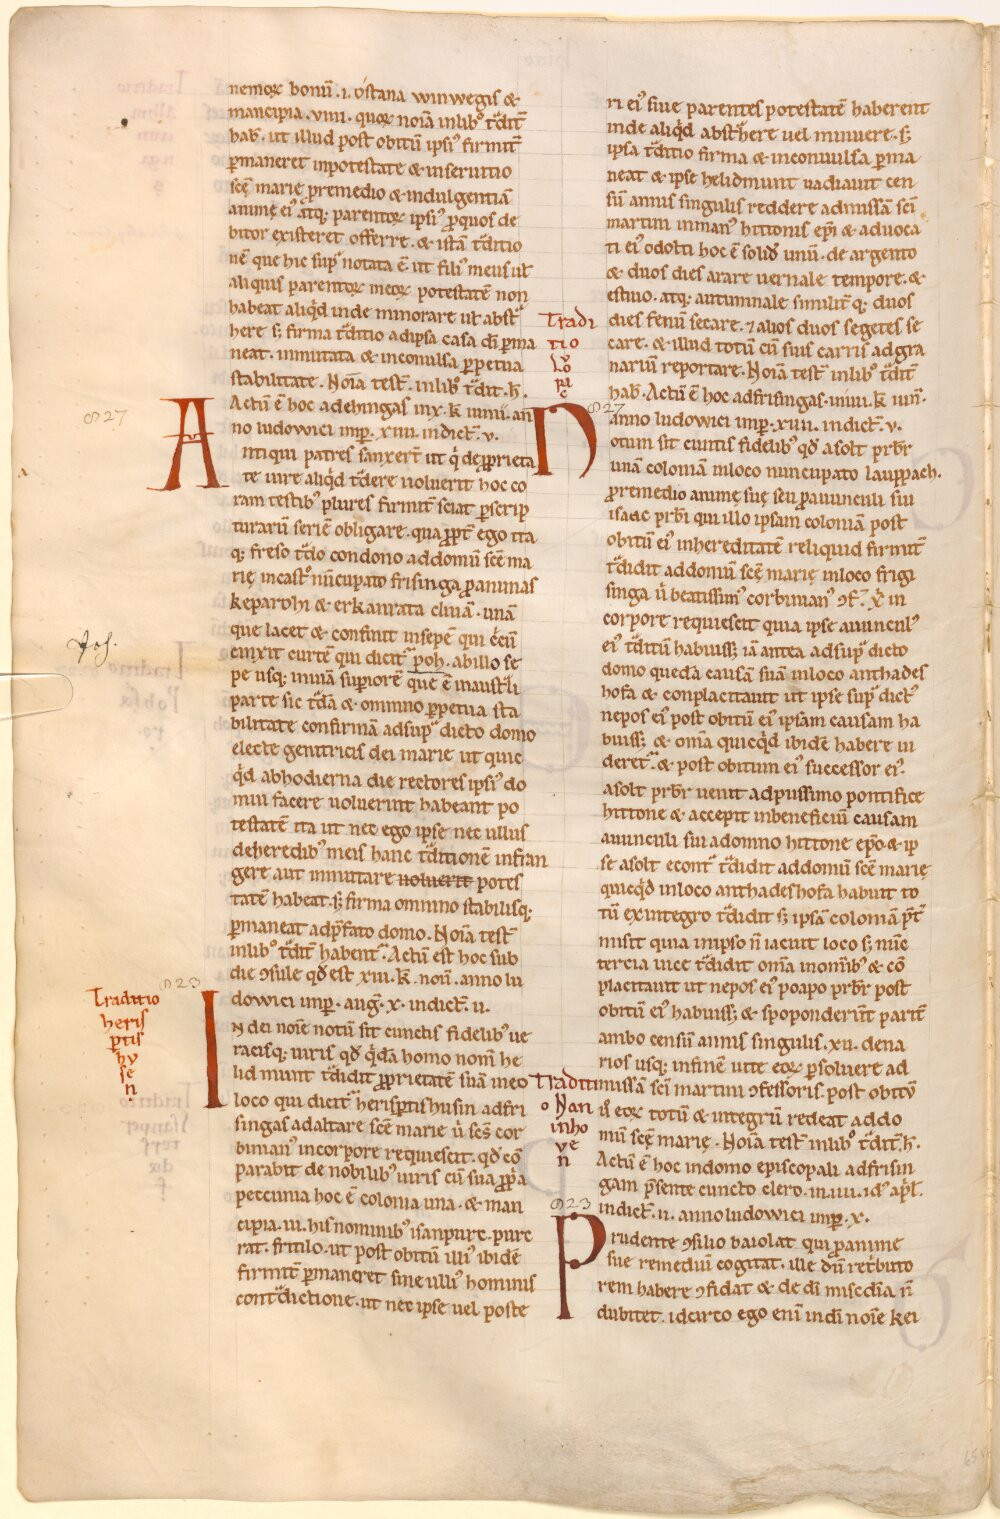 nemoꝝ bonū .i. ostana winwegis &
mancipia .viiii. quoꝝ noīa inlib᷒ t̄dit̄
hab̄. ut illud post obitū ipsi᷒ firmit̄
ꝑmaneret inpotestate & inseruitio
scę̄ marię ꝓremedio & indulgentiā
animę ei᷒ atq; parentoꝝ ipsi᷒ ꝓquos de
bitor existeret offerre. & istā t̄ditio
nē que hic sup᷒ notata ē ut fili᷒ meus ul̄
aliquis parentoꝝ meoꝝ potestatē non
habeat aliqd̄ inde minorare ul̄ abst̄
here s; firma t̄ditio adipsa casa dī ꝑma
neat. inmutata & inconuulsa ꝑpetua
stabilitate. Noīa test̄. inlib᷒ t̄dit. h̄.
Actū ē hoc adehingas in x. k̄ iunii. an
no ludowici imp̄. xiiii. indict̄. v.
Antiqui patres sanxerī ut qi de ꝓprieta
te iure aliqd̄ t̄dere uoluerit hoc co
ram testib᷒ plures firmit̄ sciat ꝑscrip
turarū seriē obligare. qua ꝓpt̄ ego ita
q; freso t̄do condono addomū scē ma
rię incast᷒ nūcupato frisinga ꝓanimas
keparohi & erkanrata cliuā. unā
que iacet & confinit insepē qui ēcū
cinxit curtē qui dicit᷒ poh. abillo se
pe usq; inuiā supiorē que ē inaustᵃli
parte sic t̄dā & omnino ꝑpetua sta
bilitate confirmā adsup᷒ dicto domo
electe genitricis dei marie ut quic
qd̄ abhodierna die rectores ipsi᷒ do
mui facere uoluerint habeant po
testatē ita ut nec ego ipse nec ullus
deheredib᷒ meis hanc t̄ditionē infran
gere aut inmutare uoluerit potes
tatē habeat. s; firma omnino stabilisq;
ꝑmaneat adp̄fato domo. Noīa test̄
inlib᷒ t̄dit̄ habent᷒. Actū est hoc sub
die ɔsule qd̄ est xiii. k̄. nou̅. anno lu
dowici imp̄. aug̅. x. indict̄. ii.
In dei noīe notū sit cunctis fidelib᷒ ue
racisq; uiris qd̄ qdā homo nom̄ he
lid munt t̄didit ꝓprietatē suā ineo
loco qui dicit᷒ herisptishusin adfri
singas adaltare scē marie ū scs̄ cor
binian᷒ incorpore requiescit. qd̄ cō
parabit de nobilib᷒ uiris cū sua ꝓp̄a
peccunia hoc ē colonia una. & man
cipia .iii. his nominib᷒ isanpurc. purc
rat. fritilo. ut post obitū illi᷒ ibidē
firmit̄ ꝑmaneret sine ulli᷒ hominis
cont̄dictione. ut nec ipse uel poste
ꝏ 27
Poh.
ꝏ 23
Traditio
heris
ptis
hv
se
n
ri ei᷒ siue parentes potestatē haberent
inde aliqd̄ abst̄here uel minuere. s;
ipsa t̄ditio firma & inconuulsa ꝑma
neat & ipse helidmunt uadiauit cen
sū annis singulis reddere admissā scī
martini inman᷒ hittonis epī & aduoca
ti ei᷒ odolti hoc ē solid̄ unū. de argento
& duos dies arare uernale tempore. &
estiuo. atq; autumnale similit̄ q; duos
dies fenū secare. ⁊ alios duos segetes se
care. & illud totū cū suis carris adgra
nariū reportare. Noīa test̄ inlib᷒ t̄dit̄
hab̄. Actū ē hoc adfrisingas. iiiiu. k̄ iun̄.
anno ludowici imp̄. xiiii. indict̄. v.
Notum sit cuntis fidelib᷒ qd̄ asolt pr̄br
unā coloniā inloco nuncupato laupach.
ꝓremedio animę suę seu ꝓauunculi sui
isaac prb̄i qui illo ipsam coloniā post
obitū ei᷒ inhereditatē reliquid firmit̄
t̄didit addomū scę̄ marię inloco frigi
singa ū beatissim᷒ corbinian᷒ ɔf̄. x̄p̄i in
corpore requiescit quia ipse auuncul᷒
ei᷒ t̄ditū habuiss; iā antea adsup᷒ dicto
domo quedā causā suā inloco anthades
hofa & conplacitauit ut ipse sup᷒ dict᷒
nepos ei᷒ post obitū ei᷒ ipsām causam ha
buiss; & om̄a quicqd̄ ibidē habere ui
deret᷒. & post obitum ei᷒ successor ei᷒.
asolt prb̄r uenit adpiissimo pontifice
hittone & accepit inbeneficiū causam
auunculi sui adomno hittone ep̄o. & ip
se asolt econt᷒ t̄didit addomū scę̄ marię
quicqd̄ inloco anthades hofa habuit to
tū exintegro t̄didit s; ipsā coloniā p̄t᷒
misit quia inipso n̄ iacuit loco s; nūc
tercia uice t̄didit om̄a inom̄ib᷒ & cō
placitauit ut nepos ei᷒ poapo prb̄r post
obitū ei᷒ habuiss; & spoponderūt partē
ambo censū annis singulis .xii. dena
rios usq; infinē uite eoꝝ ꝑsoluere ad
missā scī martini ɔfessoris. post obitū
ū eoꝝ totū & integrū redeat addo
mū scę̄ marię. Noīa test̄ inlib᷒ t̄dit̄. h̄.
Actū ē hoc indomo episcopali adfrisin
gam p̄sente cuncto clero. in iiii. id᷒ apl̄.
indict̄. ii. anno ludowici imp̄. x.
Prudente ɔsilio baiolat qui ꝓanime
sue remediū cogitat. ille dn̄ ret̄buto
rem habere ɔfidat & de dī misc̄dia n̄
dubitet. idcirco ego eni᷒ indī noīe kei
Tradi
tio
lv
ꝏ 27
Traditi
o Nan
inho
ve
n
ꝏ 23